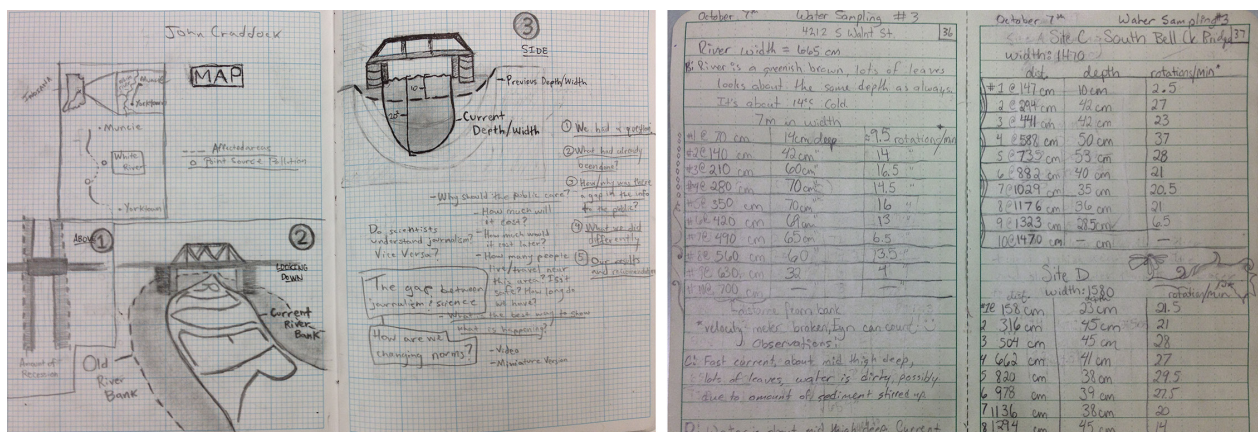 John Craddock
MAP
Indiana
Muncie
Yorktown
Muncie
White
River
Yorktown
Affected areas
Point Source Pollution
ABOVE
1
2
LOOKING
DOWN
Current
River
Bank
Old
River
Bank
Amount of
3
SIDE
Previous Depth/Width
Current
Depth/Width
1 We had a question
2 What had already
been done?
3 How/why was there
a gap in the info
to the public?
4 What we did
differently
5 Our results
and
- Why should the public care?
- How much will
it cost?
- How much would
it cost later?
- How many people
live/travel near
this area? Is it
safe? How long do
we have?
Do scientists
understand journalism?
Vice Versa?
The gap between
journalism/science
- What is the best way to show
what is happening?
- Video
- Miniature Version
How are we
changing norms?
October 7th Water Sampling #3
4212 S Walnt St 36
River width = 665 cm
B: River is a greenish brown, lots of leaves
looks about the same depth as always,
It's about 14°C Cold.
7m in width
#1@ 70 cm 14cm deep 9.5 rotations/min
#2@ 140 cm 42cm 14 "
#3@ 210 cm 60cm 16.5 "
#4@ 280 cm 70cm 14.5 "
#5@ 350 cm 70cm 16 "
#6@ 420 cm 68cm 13 "
#7@ 490 cm 65cm 6.5 "
#8@ 560 cm 60 13.5 "
630 cm 4 "
700 — —
from bank
*velocity meter broken, Eryn can count
Observations:
C: Fast current, about mid thigh deep,
lots of leaves, water is dirty, possibly
due to amount of sediment stirred up.
October 7th Water Sampling #3
Site C South Bell Ck Bridge 37
width: 1470
dist. depth rotations/min*
#1@ 147 cm 10cm 2.5
2 @ 294 cm 42 cm 27
3 @ 441 cm 42 cm 23
4 @ 588 cm 50 cm 37
5 @ 735 cm 53 cm 28
6 @ 882 cm 40 cm 21
7@ 1029 cm 35 cm 20.5
8@ 1176 cm 36 cm 21
9@ 1323 cm 28.5 cm 6.5
10@ 1470 cm — cm —
Site D
width: 1580
dist. rotation/min
#1@ 158 cm 23 cm 21.5
2 316 cm 45 cm 21
3 504 cm 45 cm 28
4 662 cm 41 cm 27
5 820 cm 38 cm 29.5
6 978 cm 39 cm 27.5
7 1136 cm 38 cm 20
8 1294 cm 45 cm 14